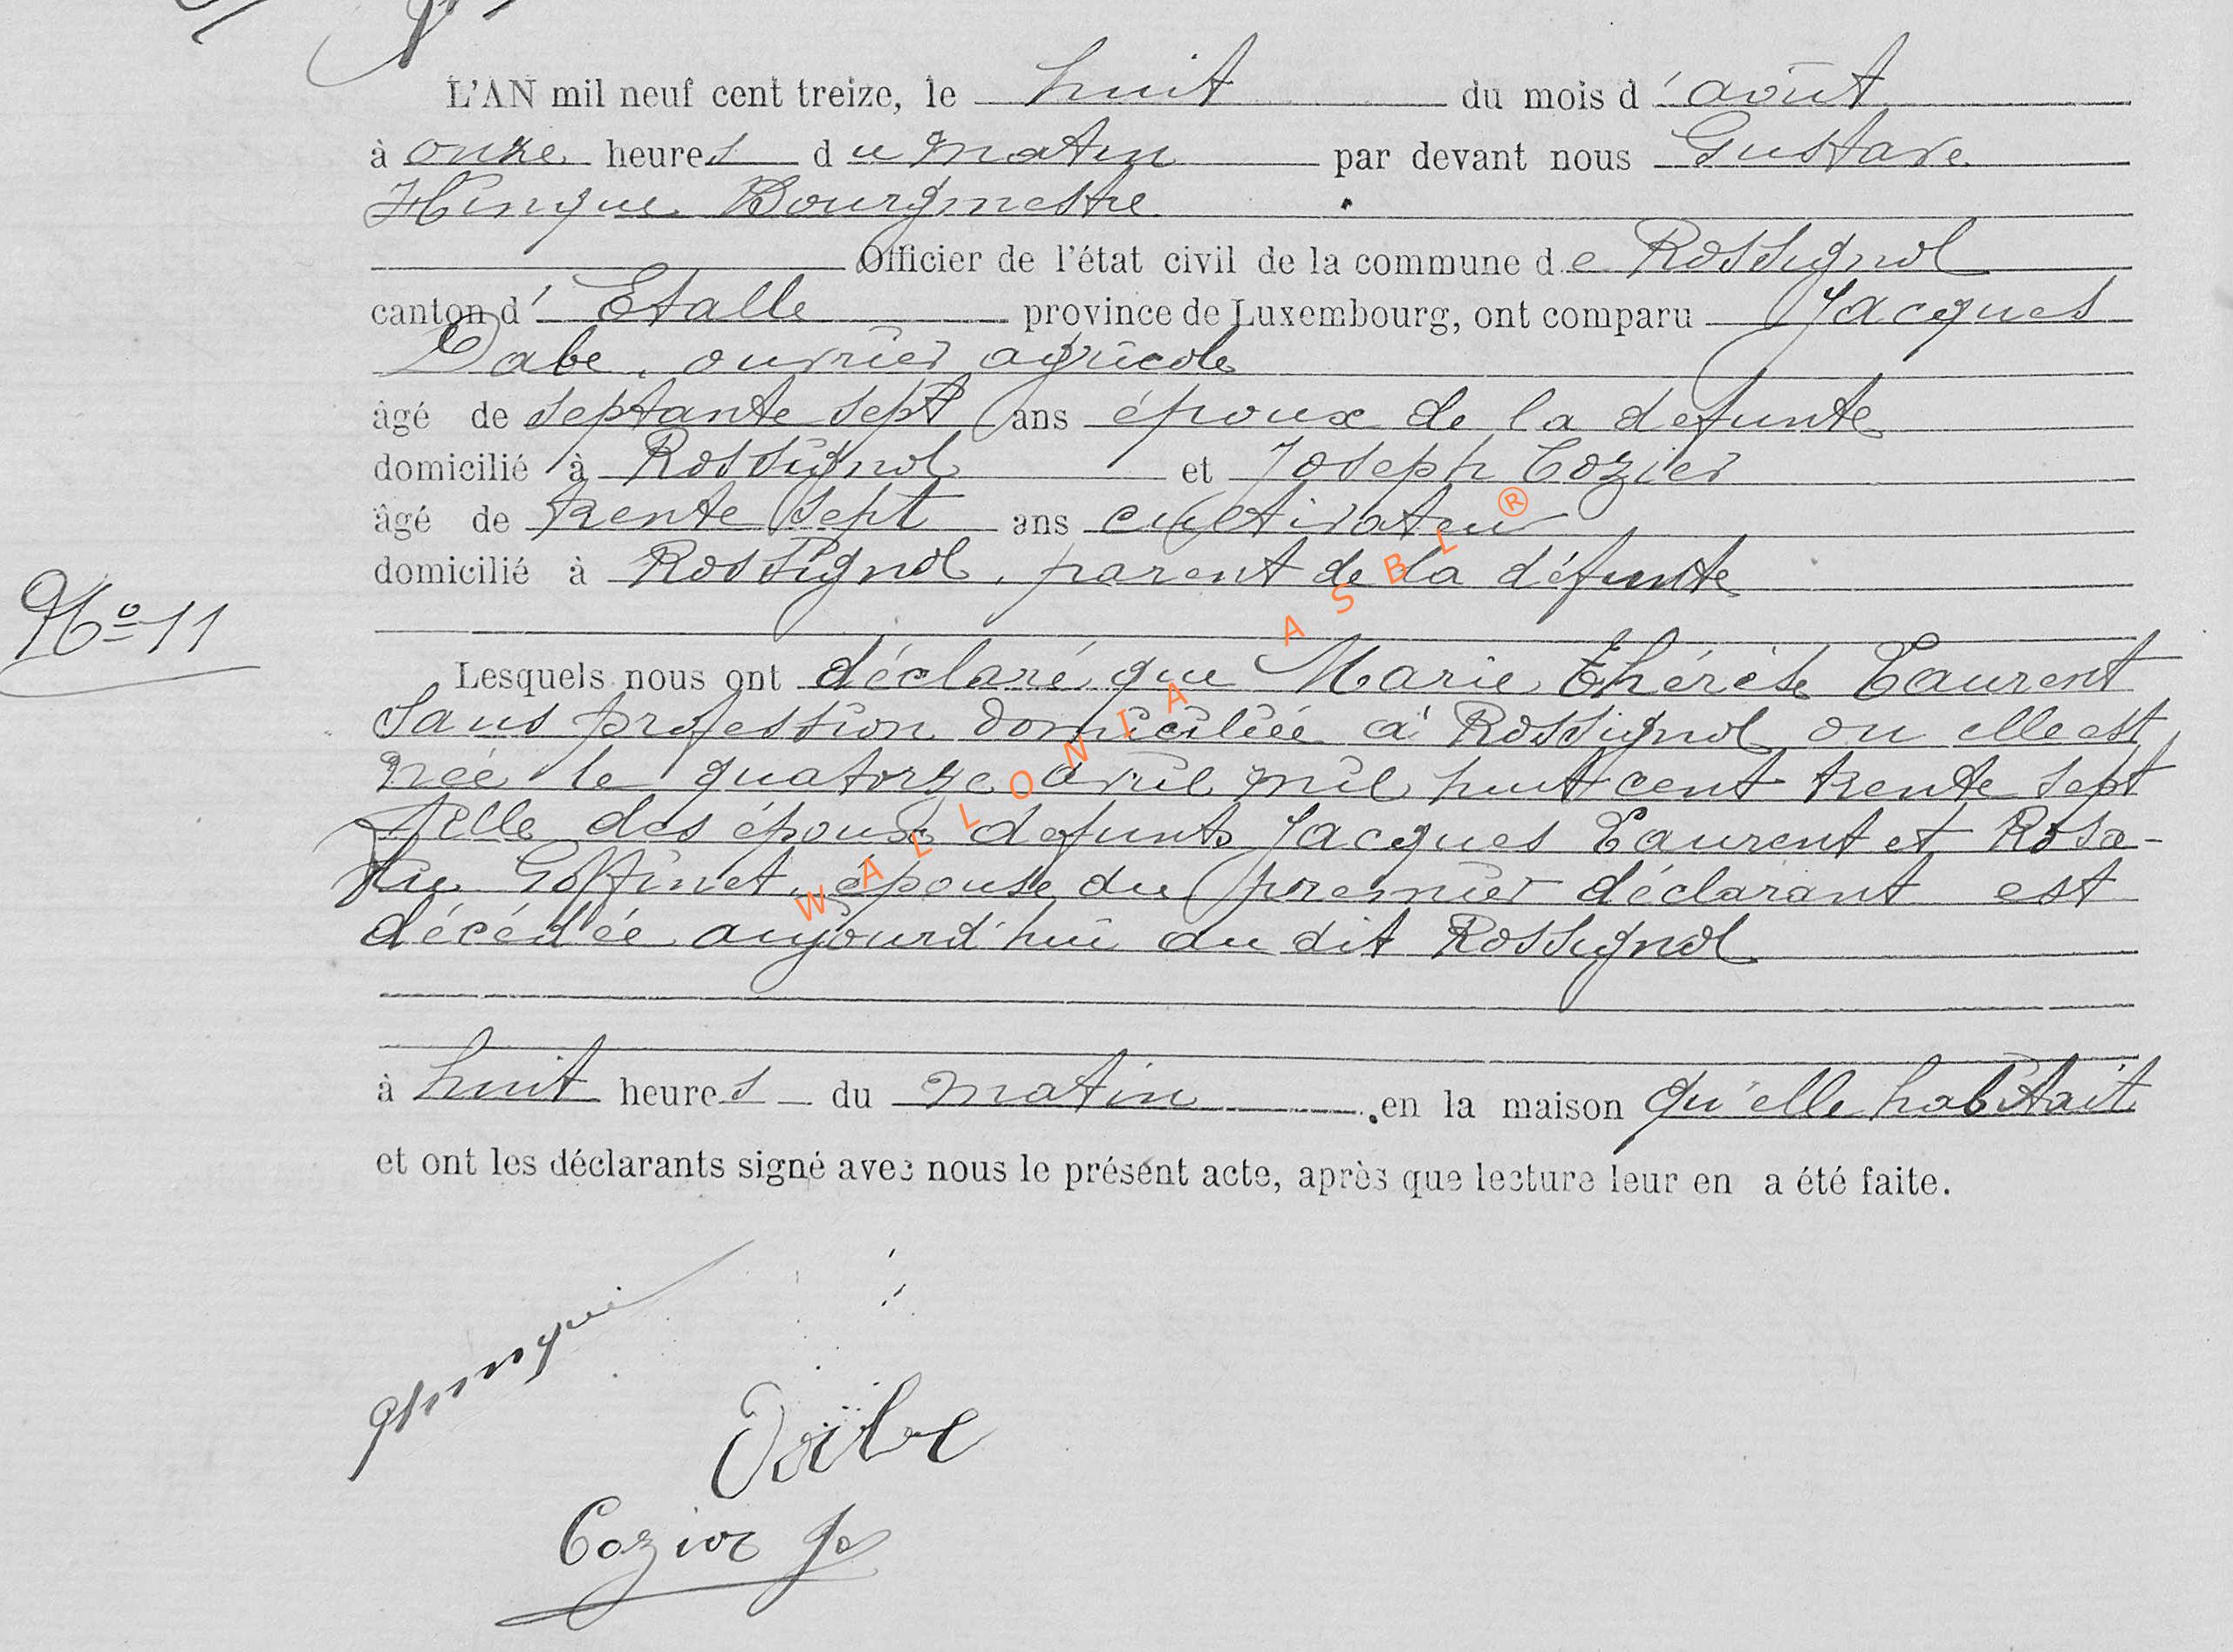 L'AN mil neuf cent treize, le huit du mois d'août
à onze heures du matin par devant nous Gustave
Hinque Bourgmestre
Officier de l'état civil de la commune de Rossignol
canton d'Etalle province de Luxembourg, ont comparu Jacques
Dabe, ouvrier agricole
âgé de septante sept ans époux de la defunte
domicilié à Rossignol et Joseph Cozier
âgé de trente sept ans cultivateur
domicilié à Rossignol, parent de la défunte
No 11
Lesquels nous ont déclaré que Marie Thérèse Laurent
sans profession domiciliée à Rossignol ou elle est
née le quatorze avril mil huit cent trente sept
fille des époux defunts Jacques Laurent et Rosa-
lie Goffinet, épouse du premier déclarant est
décédée aujourd'hui au dit Rossignol
à huit heures du matin en la maison qu'elle habitait
et ont les déclarants signé avec nous le présent acte, après que lecture leur en a été faite.
GHinque
Dabe
Cozier Js
WALLONIA ASBL ®